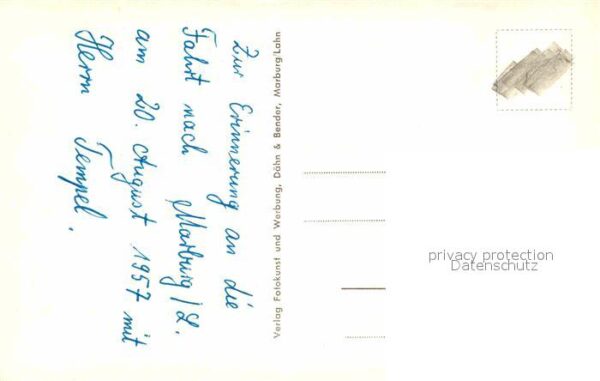 Zur Erinnerung an die
Fahrt nach Marburg/L.
am 20. August 1957 mit
Herrn Tempel.
Verlag Fotokunst und Werbung, Dähn & Bender, Marburg/Lahn
privacy protection
Datenschutz